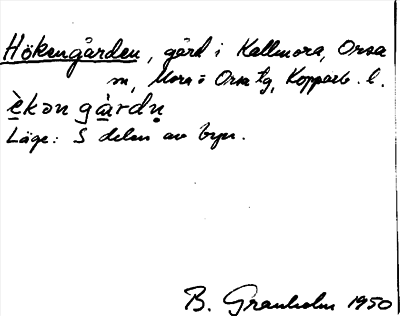 Hökengården, gård i Kallmora, Orsa
sn, Mora o Orsa tg, Kopparb. l.
èkən gàrdṇ
Läge: S delen av byn.
B. Granholm 1950